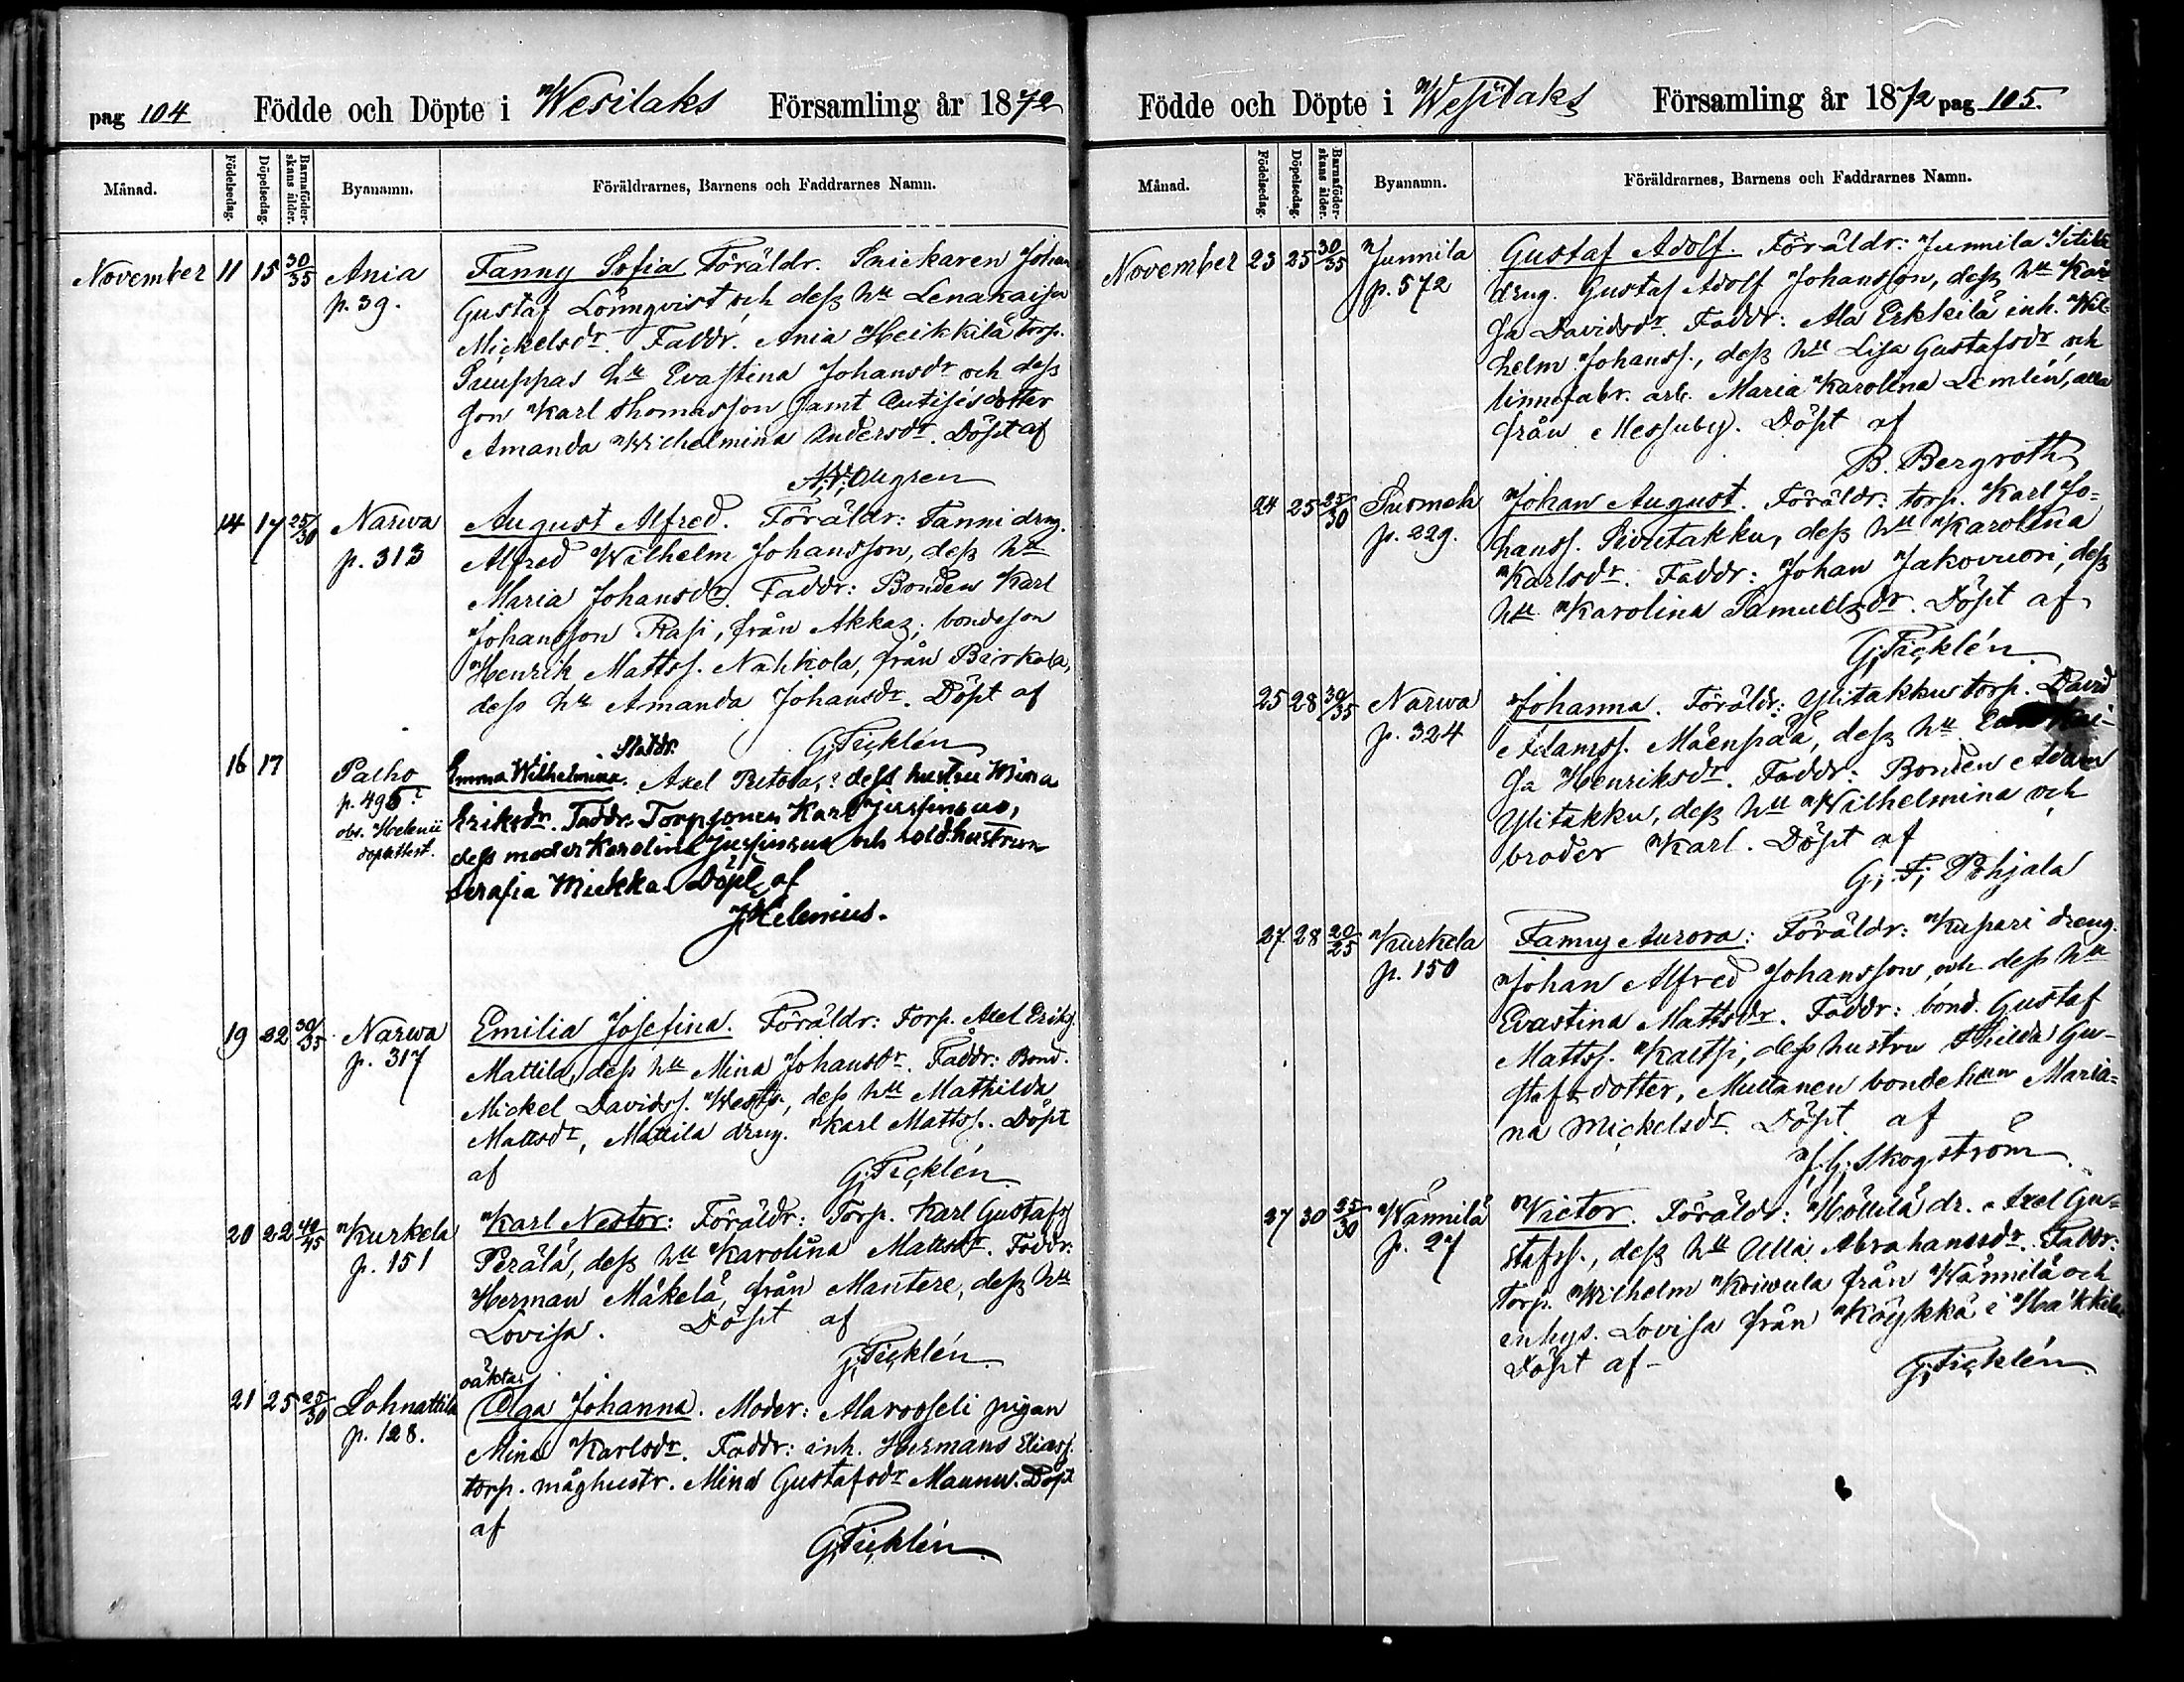 pag 104 Födde och Döpte i Wesilaks Församling år 1872
Månad. Födelsedag. Döpelsedag. Barnaföderskans ålder. Bynamn. Föräldrarnes, Barnens och Faddrarnes Namn.
November 11 15 30/35 Ania Fanny Sofia Föräldr. Snickaren Johan
p. 39. Gustaf Lönnqvist och dess hu Lenakaisa
Mickelsdr. Faddr. Ania Heikkilä torp.
Suuppas hu Evastina Johansdr och dess
son Karl Thomasson samt
Amanda Wilhelmina Andersdr. Döpt af
Augren
14 17 25/30 Narwa August Alfred. Föräldr: Tanni drng.
p. 313 Alfred Wilhelm Johansson, dess hu
Maria Johansdr. Faddr: Bonden Karl
Johansson Rasi, från Akkas; bondeson
Henrik Matts. Nahkola, från Birkala,
dess hu Amanda Johansdr. Döpt af
G. Ticklén
16 17 Palho Emma Wilhelmina. Axel dess hustru Mina
p. 495? Eriksdr. Faddr. Torpsonen Karl
obs. Helenii dess moder Karolina och sold. hustrun
dopattest. Serafia Miekka. Döpt af
J. Helenius.
19 22 30/35 Narwa Emilia Josefina. Föräldr: Torp. Axel Eriks.
p. 317 Mattila, dess hu Mina Johansdr. Faddr: Bond.
Mickel Davids. Westi, dess hu Mathilda
Mattsdr, Mattila drng. Karl Matts. Döpt
af G. Ticklén
20 22 40/45 Kurkela Karl Nestor: Föräldr: Torp. Karl Gustafs.
p. 151 Perälä, dess hu Karolina Mattsdr. Faddr:
Herman Mäkelä, från Mantere, dess hu
Lovisa. Döpt af
G. Ticklén
oäkta
21 25 25/30 Lohnattila Olga Johanna. Moder: Alarosseli pigan
p. 128. Mina Karlsdr. Faddr: inh. Hermans Elias.
torp. måghustr. Mina Gustafsdr Maunu. Döpt
af
G. Ticklén
Födde och Döpte i Wesilaks Församling år 1872 pag 105.
Månad. Födelsedag. Döpelsedag. Barnaföderskans ålder. Bynamn. Föräldrarnes, Barnens och Faddrarnes Namn.
November 23 25 30/35 Junnila Gustaf Adolf. Föräldr: Junnila
p. 572 drng. Gustaf Adolf Johansson, dess hu Kai
sa Davidsdr. Faddr: Ala Erkkilä inh. Wil-
helm Johanss., dess hu Lisa Gustafsdr och
linnefabr. arb. Maria Karolina Lemlén, alla
från Messuby. Döpt af
B. Bergroth
24 25 25/30 Suomela Johan August. Föräldr: torp. Karl Jo=
p. 229. hanss. Sivutakku, dess hu Karolina
Karlsdr. Faddr: Johan Jakovuori, dess
hu Karolina Samuelsdr. Döpt af
G. Ticklén
25 28 30/35 Narwa Johanna. Föräldr: Ylitakkus torp. David
p. 324 Adamss. Mäenpää, dess hu
sa Henriksdr. Faddr: Bonden Adam
Ylitakku, dess hu Wilhelmina och
broder Karl. Döpt af
G. F. Pohjala
27 28 20/25 Kurkela Fanny Aurora: Föräldr: Kupari dreng.
p. 150 Johan Alfred Johansson, och dess hu
Evastina Mattsdr. Faddr: bond. Gustaf
Mattss. Kaltsi, dess hustru Thilda Gu-
stafsdotter, Multanen bondehun Maria=
na Mickelsdr. Döpt af
J. G. Skogström
27 30 25/30 Wännilä Victor. Föräldr: Höllilä dr. Axel Gu=
p. 27 stafss., dess hu Ulla Abrahamsdr. Faddr:
Torp. Wilhelm från Wännilä och
enhys. Lovisa från Köykkä i
Döpt af G. Ticklén